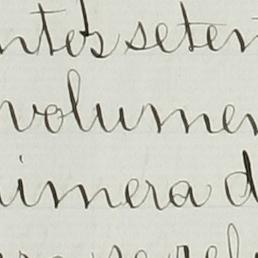 ntos seten
volumen
imera d